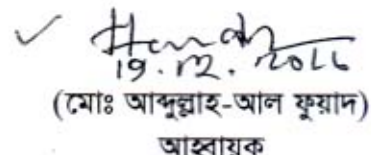 19.12.2016
(মোঃ আব্দুল্লাহ-আল ফুয়াদ)
আহবায়ক